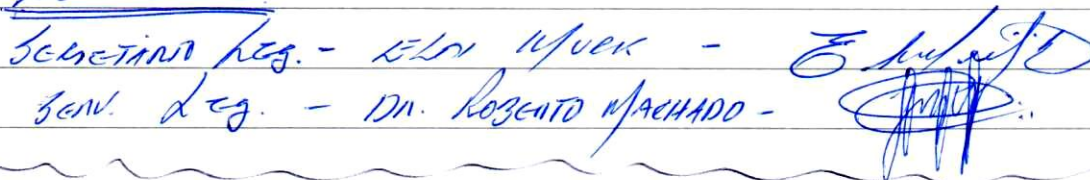 SECRETÁRIO Leg. - ELOI MUCK -
SERV. Leg. - DR. ROBERTO MACHADO -